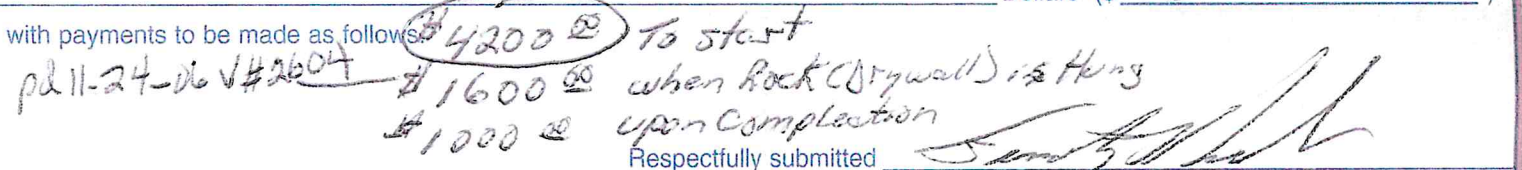 with payments to be made as follows: $4200 00 To start
pd 11-24-06 √#2604 $1600 00 when Rock (Drywall) is Hung
$1000 00 upon Complection
Respectfully submitted